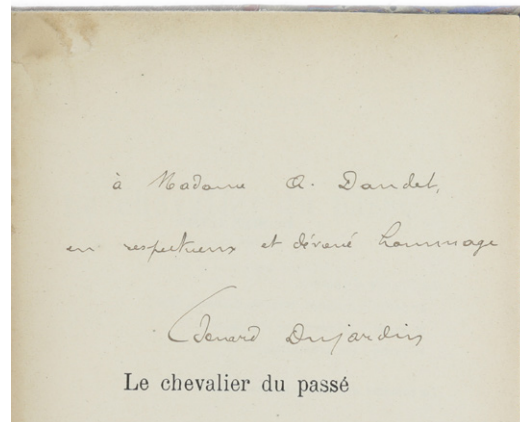 à Madame A. Daudet,
en respectueux et dévoué hommage
Edouard Dujardin
Le chevalier du passé